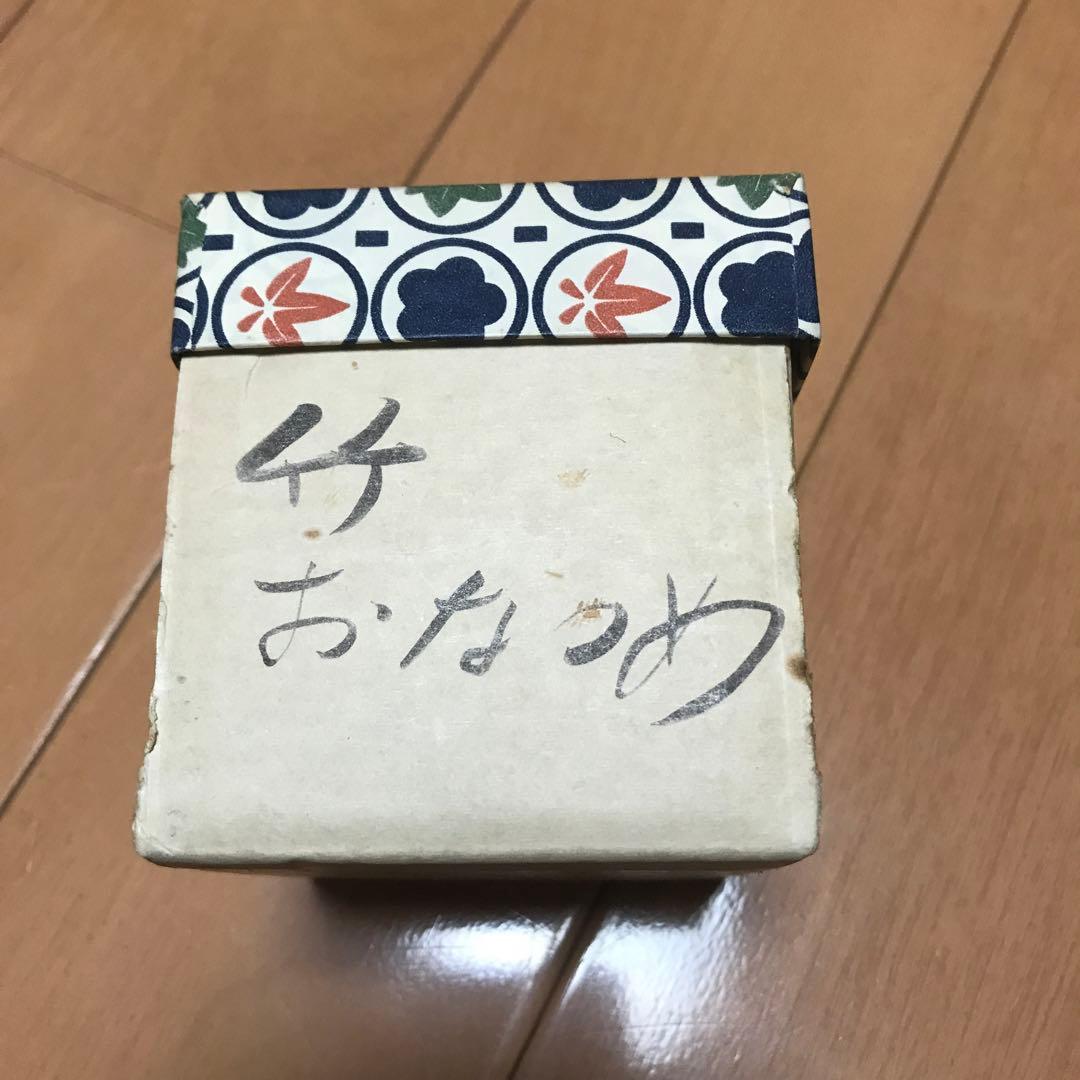 竹
おなつめ